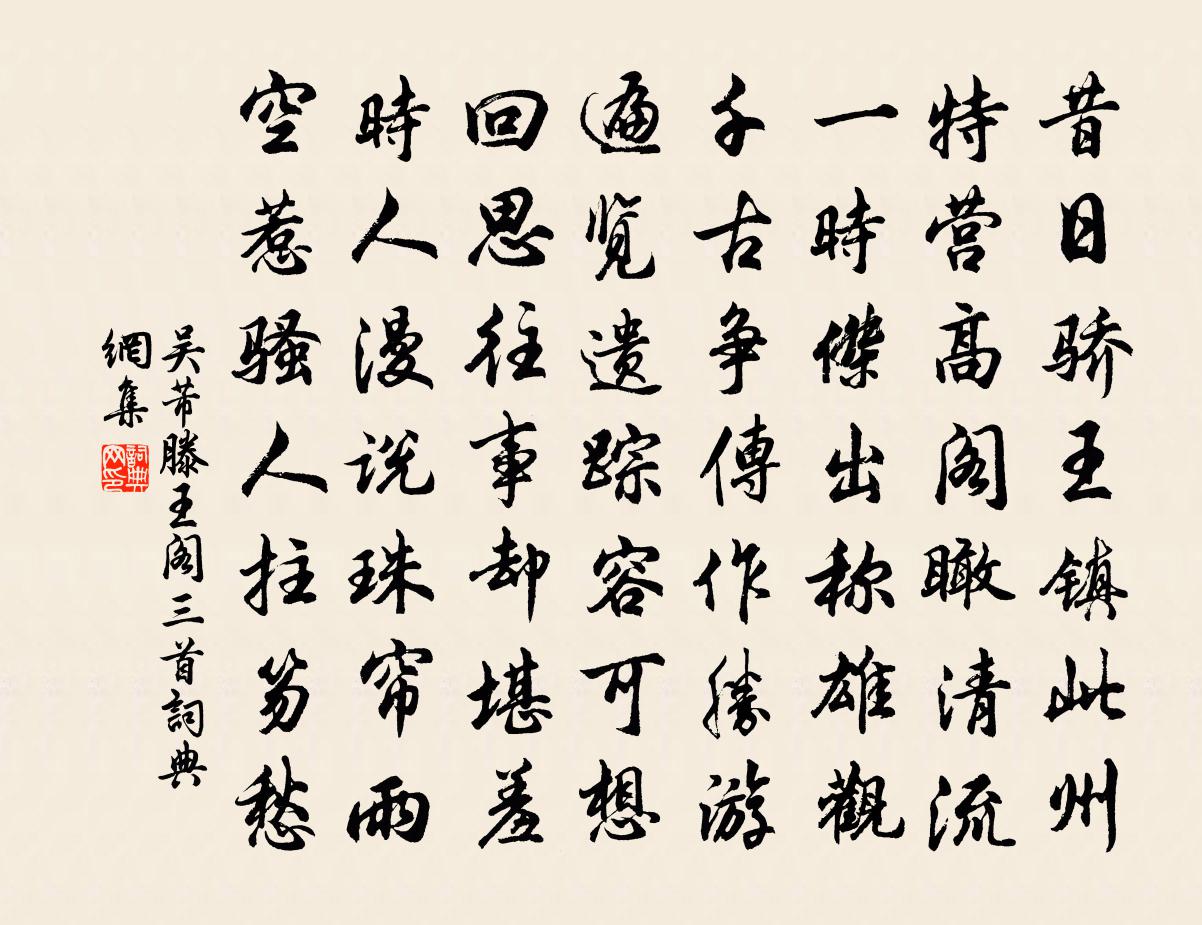 昔日骄王镇此州
特营高阁瞰清流
一時傑出称雄觀
千古争傳作勝游
遍览遗踪容可想
回思往事却堪羞
時人漫说珠帘雨
空惹骚人拄笏愁
吴芾滕王阁三首詞典
網集
詞典
网印